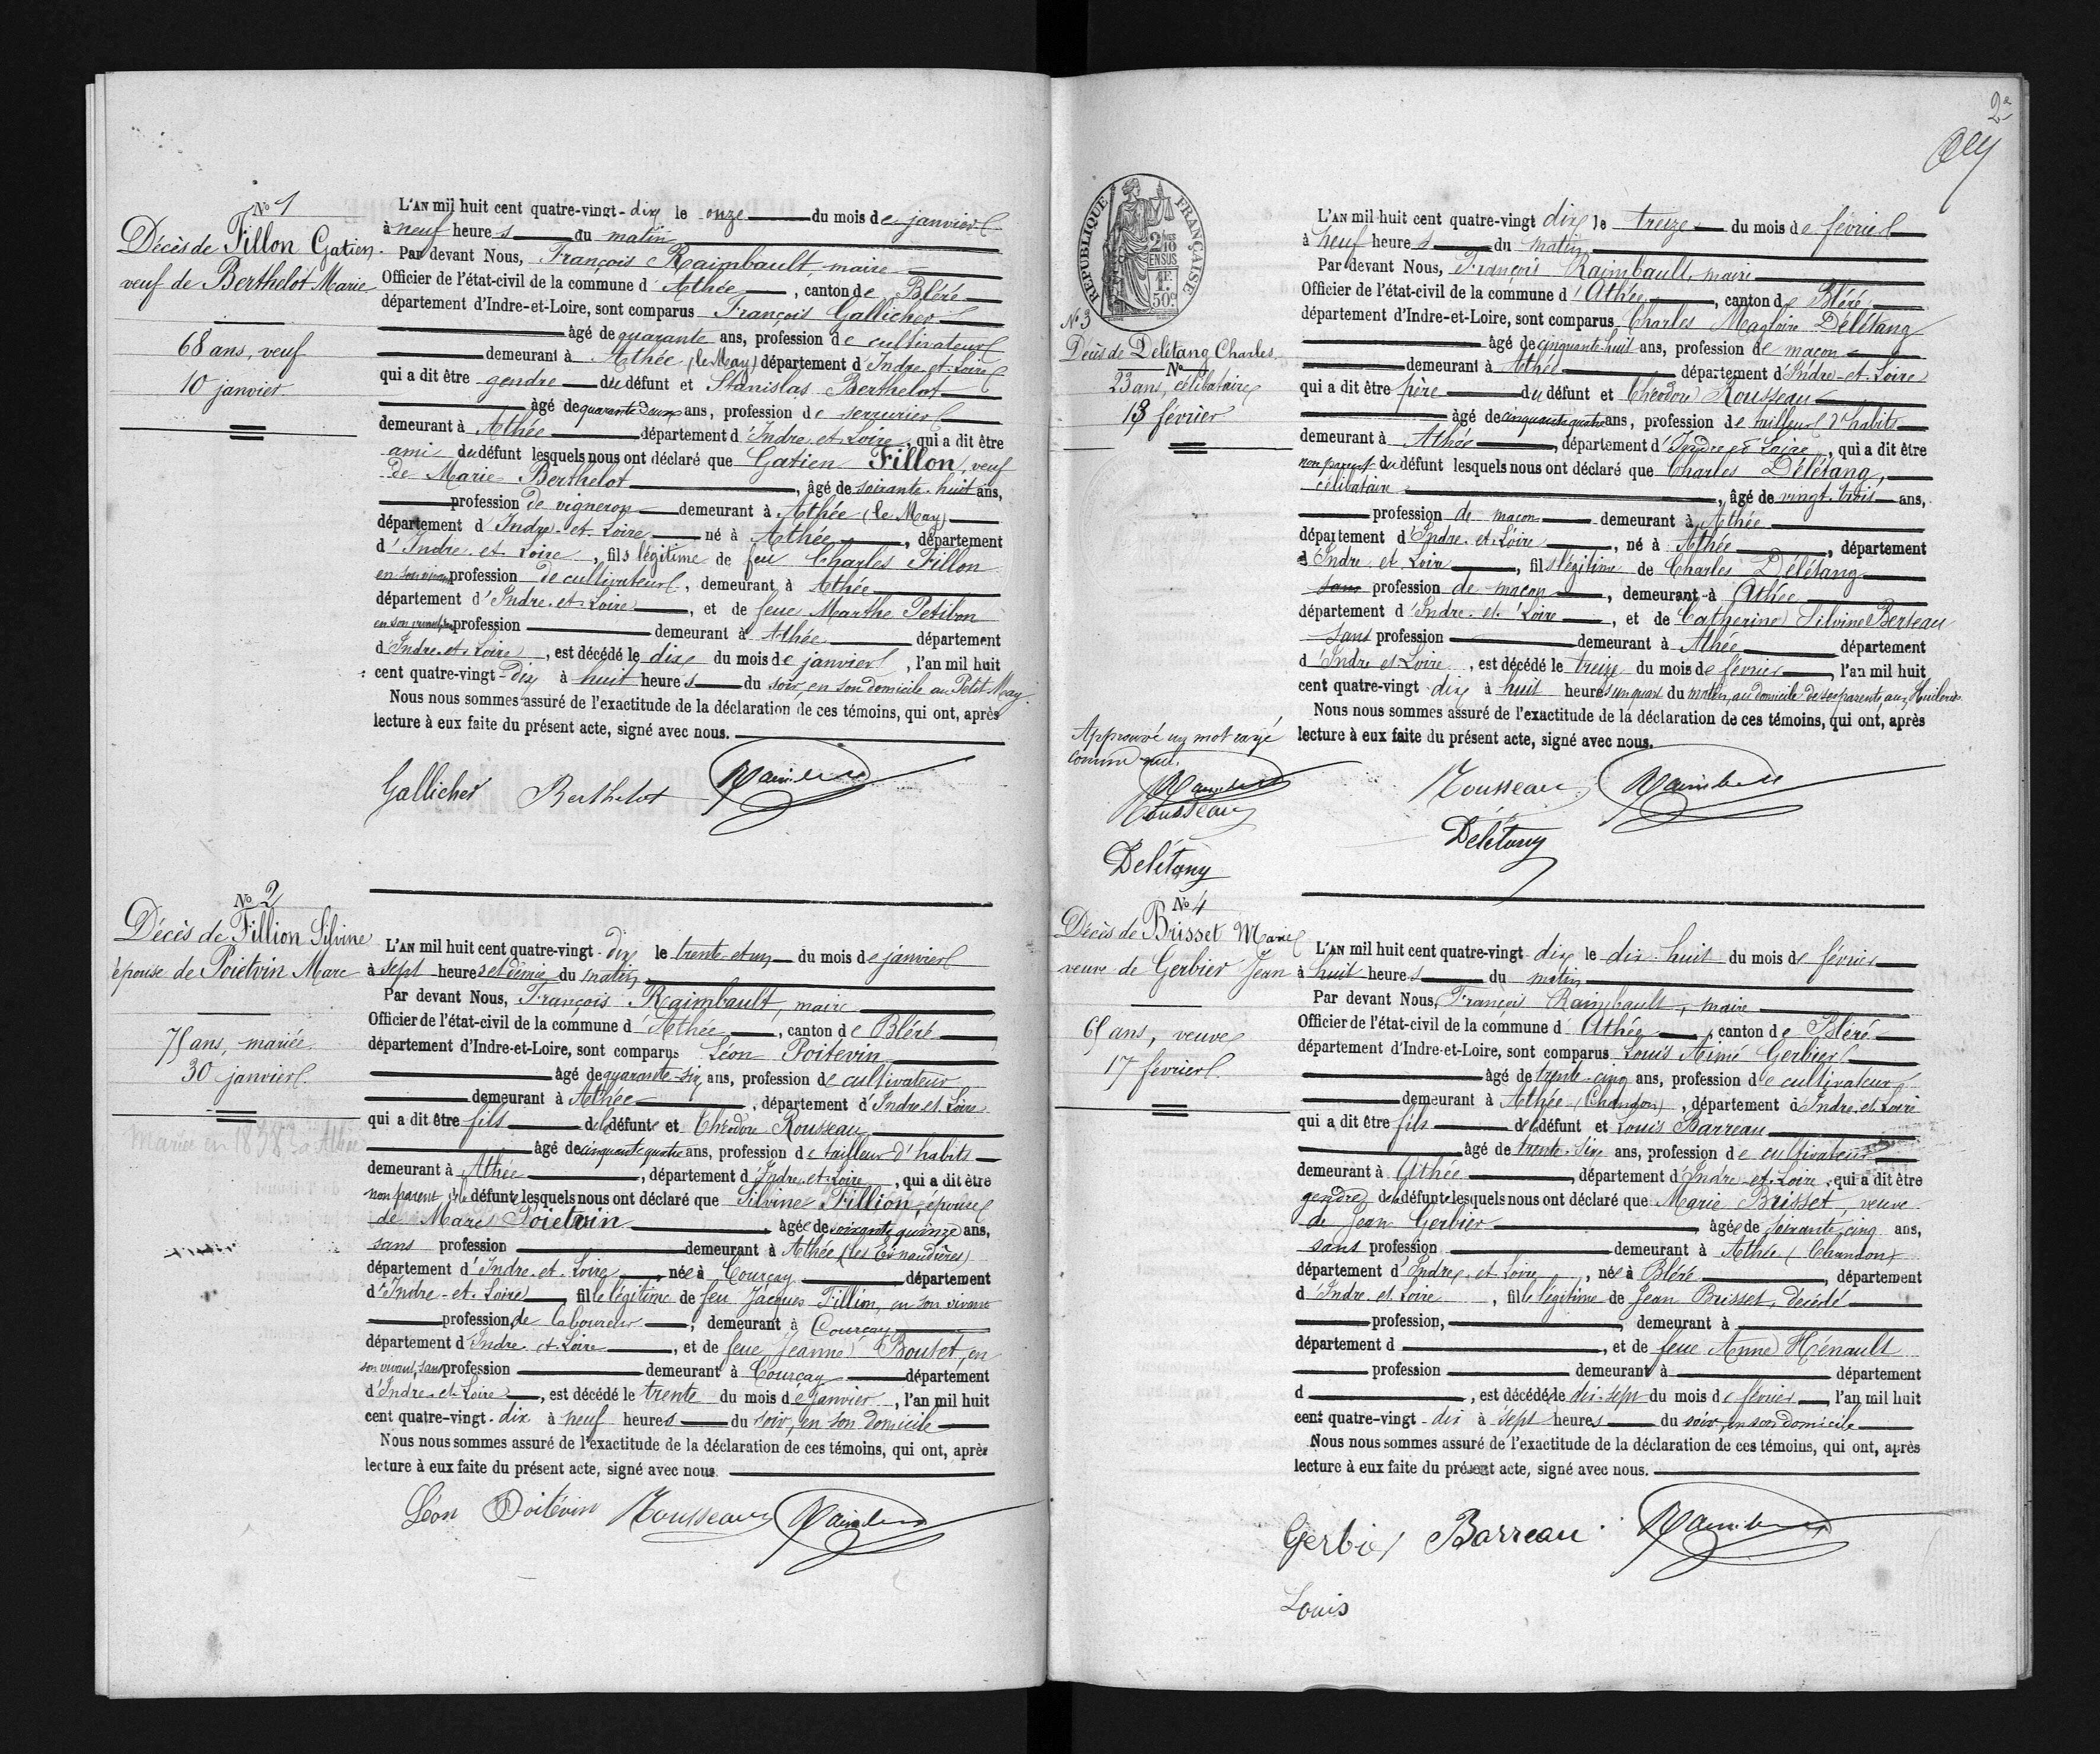 Nº 1
Décès de Fillon Gatien
veuf de Berthelot Marie
68 ans, veuf
10 janvier
L'AN mil huit cent quatre-vingt-dix le onze du mois de janvier
à neuf heures du matin
Par devant Nous, François Raimbault, maire
Officier de l'état-civil de la commune d'Athée, canton de Bléré
département d'Indre-et-Loire, sont comparus François Gallicher
âgé de quarante ans, profession de cultivateur
demeurant à Athée (le May) département d'Indre-et-Loire
qui a dit être gendre du défunt et Stanislas Berthelot
âgé de quarante deux ans, profession de serrurier
demeurant à Athée département d'Indre et Loire, qui a dit être
ami du défunt lesquels nous ont déclaré que Gatien Fillon, veuf
de Marie Berthelot, âgé de soixante-huit ans,
profession de vigneron demeurant à Athée (le May)
département d'Indre-et-Loire né à Athée, département
d'Indre-et-Loire, fils légitime de feu Charles Fillon
en son vivant profession de cultivateur, demeurant à Athée
département d'Indre-et-Loire, et de feue Marthe Petibon
en son vivant, sans profession demeurant à Athée département
d'Indre-et-Loire, est décédé le dix du mois de janvier, l'an mil huit
cent quatre-vingt-dix à huit heures du soir, en son domicile au Petit May.
Nous nous sommes assuré de l'exactitude de la déclaration de ces témoins, qui ont, après
lecture à eux faite du présent acte, signé avec nous.
Gallicher Berthelot Raimbault
Nº 2
Décès de Fillion Silvine
épouse de Poietvin Marc
75 ans, mariée
30 janvier
Mariée en 1838 à Athée
L'AN mil huit cent quatre-vingt-dix le trente-et-un du mois de janvier
à sept heures et demie du matin
Par devant Nous, François Raimbault, maire
Officier de l'état-civil de la commune d'Athée, canton de Bléré
département d'Indre-et-Loire, sont comparus Léon Poitevin
âgé de quarante-six ans, profession de cultivateur
demeurant à Athée, département d'Indre et Loire
qui a dit être fils de la défunte et Théodore Rousseau
âgé de cinquante quatre ans, profession de tailleur d'habits
demeurant à Athée, département d'Indre-et-Loire, qui a dit être
non parent de la défunte lesquels nous ont déclaré que Silvine Fillion, épouse
de Marc Poietvin âgée de soixante quinze ans,
sans profession demeurant à Athée
département d'Indre-et-Loire, née à Courçay département
d'Indre-et-Loire, fille légitime de feu Jacques Fillion, en son vivant
profession, de laboureur, demeurant à Courçay
département d'Indre et Loire, et de feue Jeanne Boutet, en
son vivant, sans profession demeurant à Courçay département
d'Indre-et-Loire, est décédé le trente du mois de janvier, l'an mil huit
cent quatre-vingt-dix à neuf heures du soir, en son domicile
Nous nous sommes assuré de l'exactitude de la déclaration de ces témoins, qui ont, après
lecture à eux faite du présent acte, signé avec nous.
Léon Poitevin Rousseau Raimbault
2e
RÉPUBLIQUE FRANÇAISE
2/10 EN SUS
1F. 50c
Nº 3
Décès de Delétang Charles
Nº
23 ans, célibataire
13 février
L'AN mil huit cent quatre-vingt dix le treize du mois de février
à neuf heures du matin
Par devant Nous, François Raimbault, maire
Officier de l'état-civil de la commune d'Athée, canton de Bléré
département d'Indre-et-Loire, sont comparus Charles Magloire Delétang
âgé de cinquante huit ans, profession de maçon
demeurant à Athée département d'Indre-et-Loire
qui a dit être père du défunt et Théodore Rousseau
âgé de cinquante quatre ans, profession de tailleur d'habits
demeurant à Athée, département d'Indre et Loire, qui a dit être
non parent du défunt lesquels nous ont déclaré que Charles Delétang,
célibataire, âgé de vingt-trois ans,
profession de maçon demeurant à Athée
département d'Indre-et-Loire, né à Athée, département
d'Indre et Loire, fils légitime de Charles Delétang
sans profession de maçon, demeurant à Athée
département d'Indre-et-Loire, et de Catherine Silvine Berteau
sans profession demeurant à Athée département
d'Indre et Loire, est décédé le treize du mois de février, l'an mil huit
cent quatre-vingt dix à huit heures un quart du matin, au domicile de ses parents, aux
Nous nous sommes assuré de l'exactitude de la déclaration de ces témoins, qui ont, après
lecture à eux faite du présent acte, signé avec nous.
Approuvé un mot rayé
comme nul.
Raimbault
Rousseau
Delétang
Rousseau Raimbault
Delétang
Nº 4
Décès de Brisset Marie
veuve de Gerbier Jean
65 ans, veuve
17 février
L'AN mil huit cent quatre-vingt-dix le dix-huit du mois de février
à huit heures du matin
Par devant Nous, François Raimbault, maire
Officier de l'état-civil de la commune d'Athée, canton de Bléré
département d'Indre-et-Loire, sont comparus Louis Aimé Gerbier
âgé de trente-cinq ans, profession de cultivateur
demeurant à Athée (Chandon), département d'Indre et Loire
qui a dit être fils de la défunt et Louis Barreau
âgé de trente-six ans, profession de cultivateur
demeurant à Athée, département d'Indre-et-Loire, qui a dit être
gendre de la défunte lesquels nous ont déclaré que Marie Brisset, veuve
de Jean Gerbier âgée de soixante cinq ans,
sans profession demeurant à Athée (Chandon)
département d'Indre-et-Loire, née à Bléré, département
d'Indre et Loire, fille légitime de Jean Brisset, décédé
profession, demeurant à
département d, et de feue Anne Hénault
profession demeurant à département
d, est décédée le dix-sept du mois de février, l'an mil huit
cent quatre-vingt-dix à sept heures du soir, en son domicile
Nous nous sommes assuré de l'exactitude de la déclaration de ces témoins, qui ont, après
lecture à eux faite du présent acte, signé avec nous.
Gerbier Barreau Raimbault
Louis